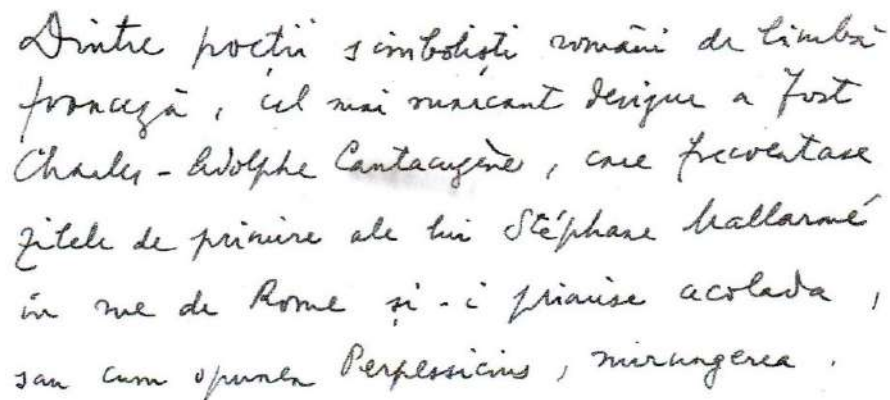 Dintre poeții simboliști români de limbă
franceză, cel mai marcant desigur a fost
Charles-Adolphe Cantacuzène, care frecventase
zilele de primire ale lui Stéphane Mallarmé
în rue de Rome și-i primise acolada,
sau cum spunea Perpessicius, mirungerea.